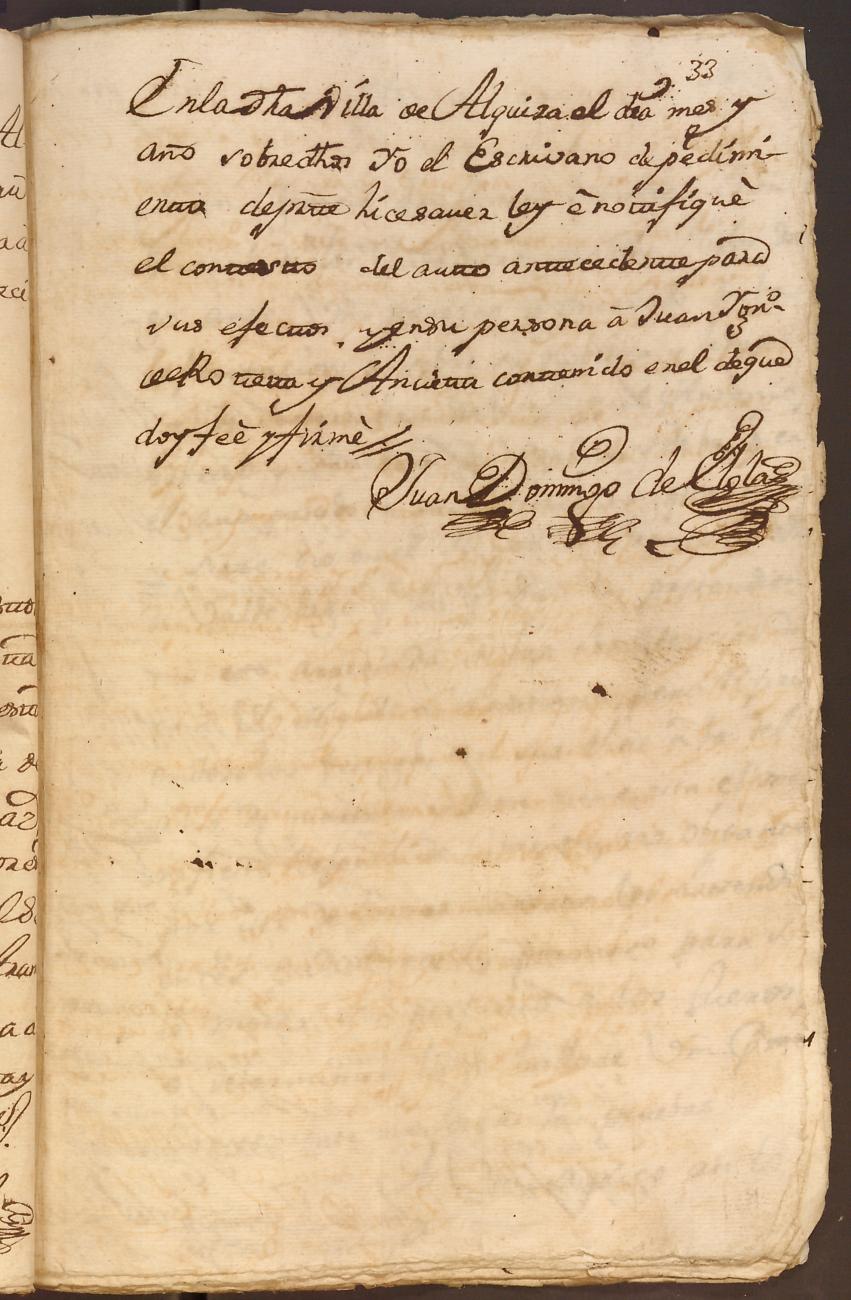 33
En la dha Villa de Alquiza el dia mes y
año sobredhos Yo el Escrivano de pedimi-
ento de parte hice saver ley è notifiquè
el contesto del auto antecedente para
sus efectos, y en su persona â Juan Ygn.º
de Roteta y Ancieta contenido en el de que
doy feè y firmè //
Juan Domingo de